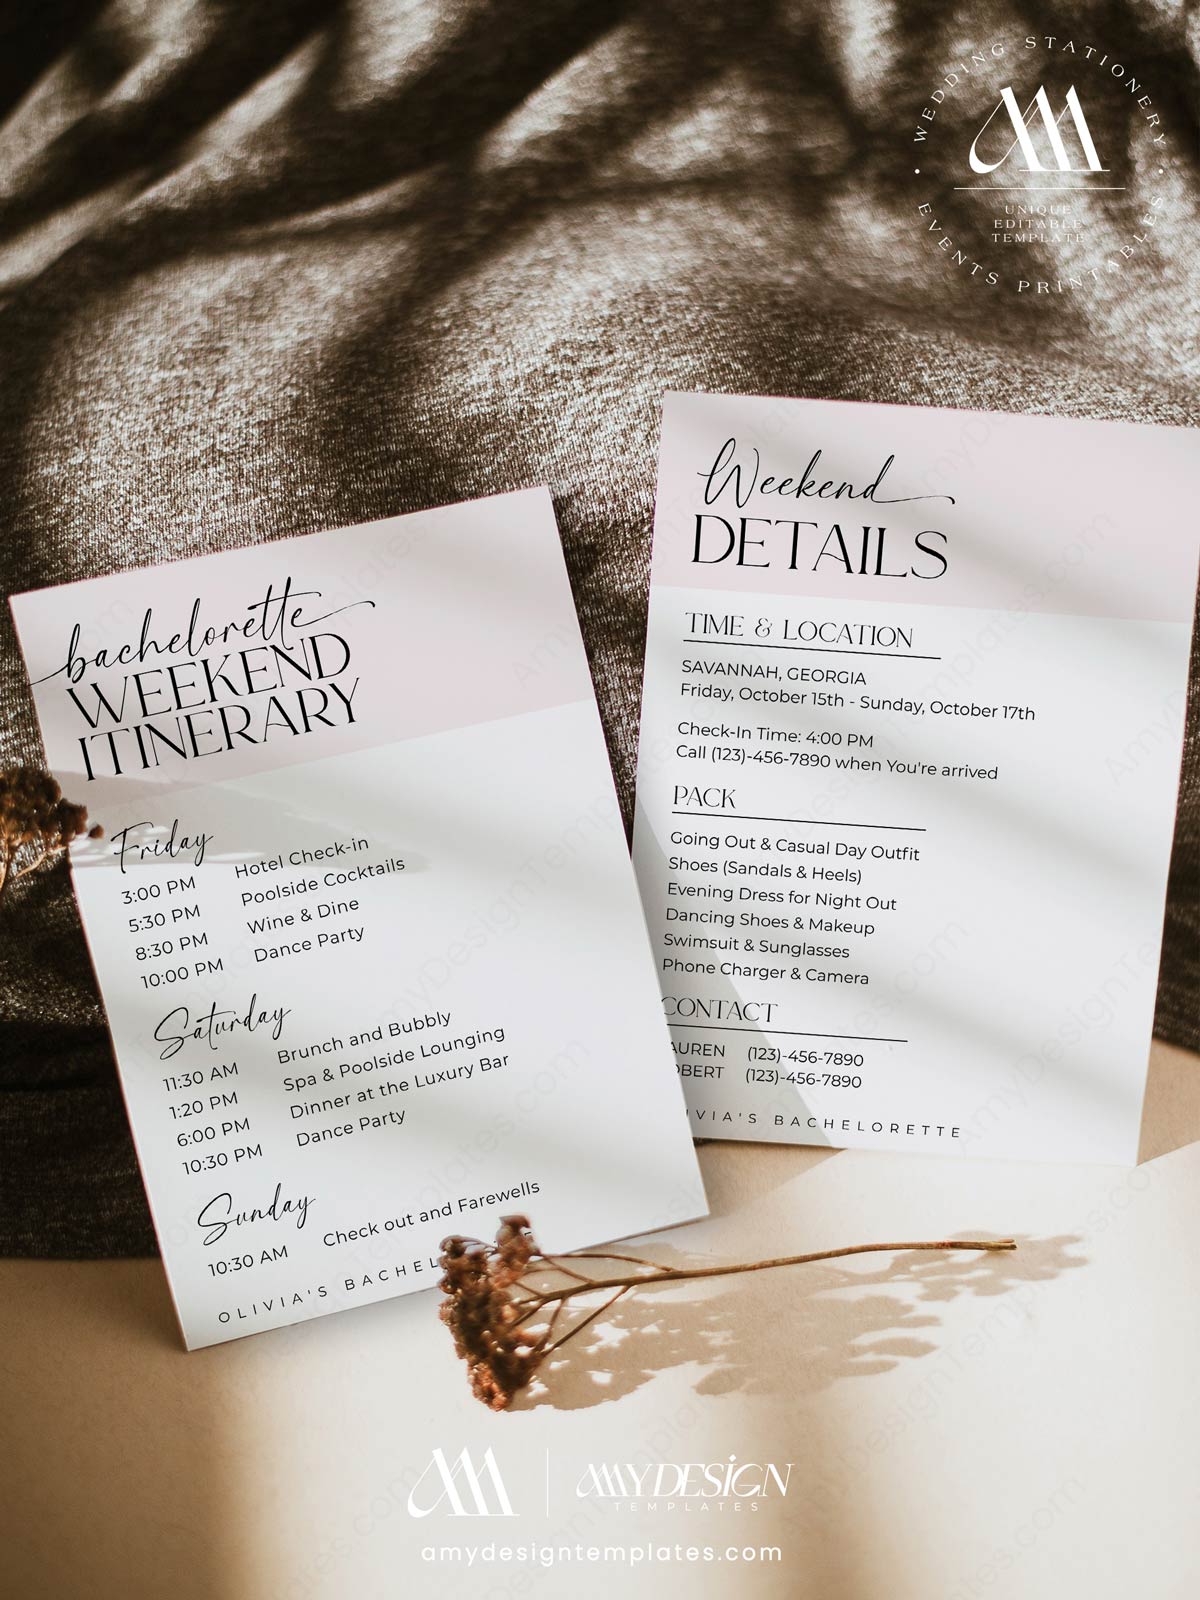 WEDDING STATIONERY
UNIQUE
EDITABLE
TEMPLATE
EVENTS PRINTABLES
bachelorette
WEEKEND
ITINERARY
Friday
3:00 PM Hotel Check-in
5:30 PM Poolside Cocktails
8:30 PM Wine & Dine
10:00 PM Dance Party
Saturday
11:30 AM Brunch and Bubbly
1:20 PM Spa & Poolside Lounging
6:00 PM Dinner at the Luxury Bar
10:30 PM Dance Party
Sunday
10:30 AM Check out and Farewells
OLIVIA'S BACHEL
Weekend
DETAILS
TIME & LOCATION
SAVANNAH, GEORGIA
Friday, October 15th - Sunday, October 17th
Check-In Time: 4:00 PM
Call (123)-456-7890 when You're arrived
PACK
Going Out & Casual Day Outfit
Shoes (Sandals & Heels)
Evening Dress for Night Out
Dancing Shoes & Makeup
Swimsuit & Sunglasses
Phone Charger & Camera
CONTACT
AUREN (123)-456-7890
OBERT (123)-456-7890
IVIA'S BACHELORETTE
AMYDESIGN
TEMPLATES
amydesigntemplates.com